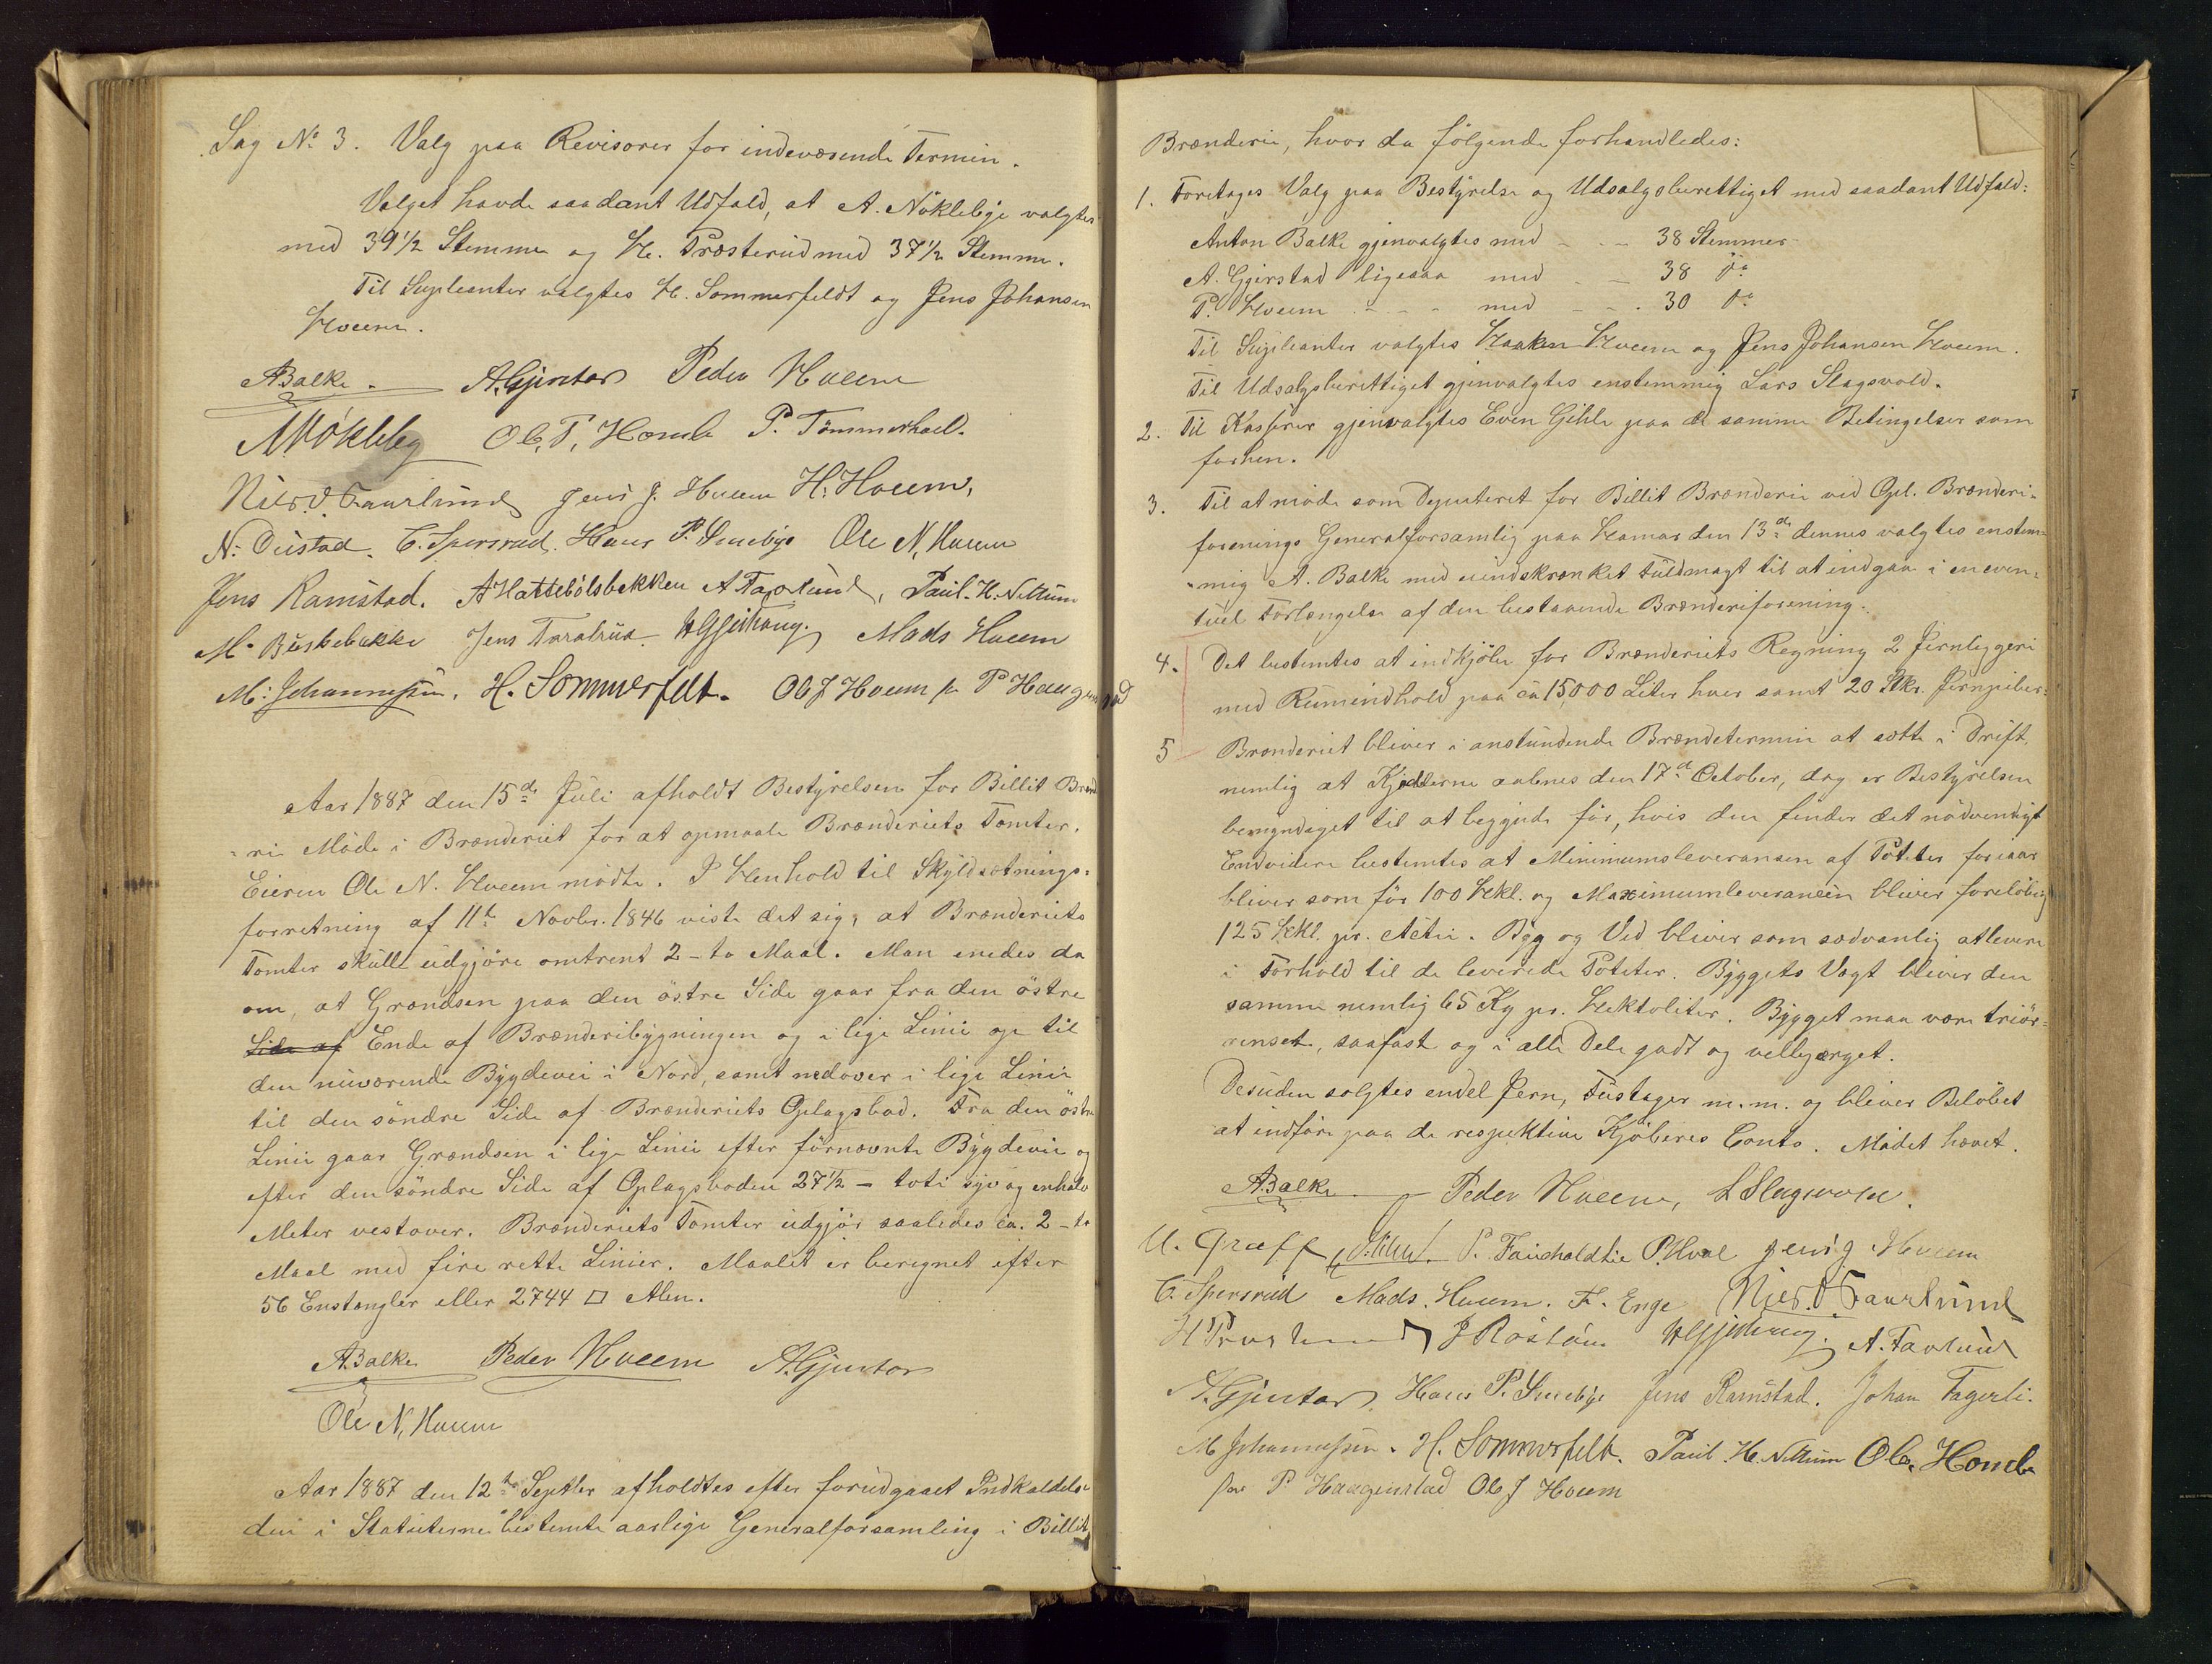 Sag № 3. Valg paa Revisorer for indeværende Termin.
Valget havde saadant Udfald, at A. Nökleby valgtes
med 39 1/2 Stemme og H. Præsterud med 37 1/2 Stemme.
Til Supleanter valgtes H. Sommerfeldt og Jens Johansen
Hveem.
ABalke. A. Gjerstad Peder Hveem
A Nökleby Ole T. Homb P. Tömmerhoel.
Niels O. Faurlund Jens J. Hveem H. Hveem,
N. Oustad. C. Spersrud. Hans P. Smeby Ole N, Hveem
Jens Ramstad. A Hattebölsbakken A Faurlund, Paul. H. Nettum
M. Biskebakke Jens HGjestvang. Mads Hveem
M: Johannessen. H. Sommerfelt. Ole J Hveem pr P Haugenstad
Aar 1887 den 15de Juli afholdt Bestyrelsen for Billit Brænde
ri Möde i Brænderiet for at opmaale Brænderiets Tomter.
Eieren Ole N. Hveem mödte. I Henhold til Skyldsætnings=
forretning af 11te Novbr. 1846 viste det sig, at Brænderiets
Tomter skulle udgjöre omtrent 2 - to Maal. Man enedes da
om, at Grændsen paa den östre Side gaar fra den östre
Side af Ende af Brænderibygningen og i lige Linie op til
den nuværende Bygdevei i Nord, samt nedover i lige Linie
til den söndre Side af Brænderiets Oplagsbod. Fra den östre
Linie gaar Grændsen i lige Linie efter förnævnte Bygdevei og
efter den söndre Side af Oplagsboden 27 1/2 - toti syv og enhalv
Meter vestover. Brænderiets Tomter udgjör saaledes ca. 2 - to
Maal med fire rette Linier. Maalet er beregnet efter
56 Enstængler eller 2744 □ Alen.
ABalke Peder Hveem A. Gjerstad
Ole N, Hveem
Aar 1887 den 12te Septbr afholdtes efter forudgaaet Indkaldelse
den i Statuterne bestemte aarlige Generalforsamling i Billit
Brænderi, hvor da fölgende forhandledes:
1. Foretages Valg paa Bestyrelse og Udsalgsberettiget med saadant Udfald:
Anton Balke gjenvalgtes med - - - 38 Stemmer
A. Gjerstad ligesaa med - - 38 do
P. Hveem - - - med - - - 30 do
Til Supleanter valgtes Haaken Hveem og Jens Johansen Hveem.
Til Udsalgsberettiget gjenvalgtes enstemmig Lars Slagsvold.
2. Til Kasserer gjenvalgtes Even Gihle paa de samme Betingelser som
forhen.
3. Til at möde som Deputeret for Billit Brænderi ved Opl. Brænderi=
forenings Generalforsamlig paa Hamar den 13de dennes valgtes enstem=
mig A. Balke med uindskrænket Fuldmagt til at indgaa i en even=
tuel Forlængelse af den bestaaende Brænderiforening.
4. Det bestemtes at indkjöbe for Brænderiets Regning 2 Jernliggeri
med Rumindhold paa ca 15,000 Liter hver samt 20 Stkr. Jernpiber.
5 Brænderiet bliver i anstundende Brændetermin at sætte i Drift,
nemlig at Kjedlerne aabnes den 17de October, dog er Bestyrelsen
bemyndiget til at begynde för, hvis den finder det nödvendigt
Endvidere bestemtes at Minimumsleveransen af Poteter for iaar
bliver som för 100 Hekl. og Maximumleveransen bliver forelöbig
125 Hekl. pr. Actie. Byg og Ved bliver som sædvanlig at levere
i Forhold til de leverede Poteter. Byggets Vægt bliver den
samme nemlig 65 Kg pr. Hektoliter. Bygget maa være triör=
renset, saafast og i alle Dele godt og velbjærget.
Desuden solgtes endel Jern, Fustager m.m. og bliver Belöbet
at indföre paa de respektive Kjöberes Conto. Mödet hævet.
ABalke. Peder Hveem, L Slagsvold.
U. Græff P. Fauchaldlie P. Hval Jens J. Hveem
C. Spersrud Mads. Hveem. F. Enge Niels. O. Faurlund
H Præsterud J Röstöen HGjestvang. A. Faurlund
A. Gjerstad Hans P. Smeby Jens Ramstad. Johan Fagerli.
M Johannessen. H. Sommerfelt. Paul. H. Nettum Ole. Homb
for P Haugenstad Ole J Hveem